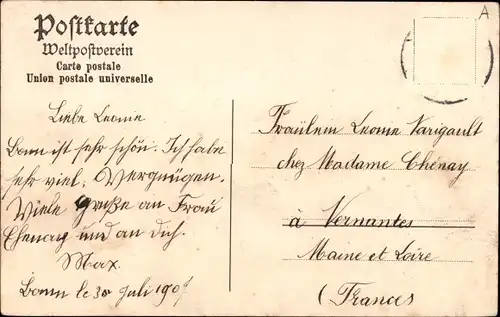 A
Postkarte
Weltpostverein
Carte postale
Union postale universelle
Liebe Leonie
Bonn ist sehr schön. Ich habe
sehr viel Vergnügen.
Viele Grüße an Frau
Chenay und an dich.
Max.
Bonn le 30 Juli 190
Fräulein Leonie Varigault
chez Madame Chénay
à Vernantes
Maine et Loire
(France)